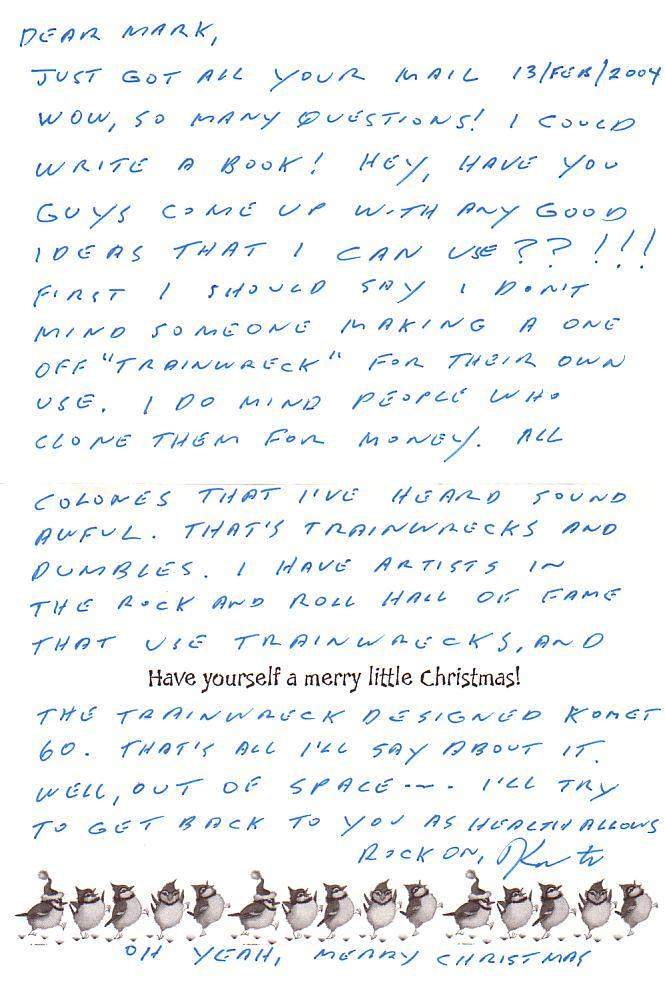 DEAR MARK,
JUST GOT ALL YOUR MAIL 13/FEB/2004
WOW, SO MANY QUESTIONS! I COULD
WRITE A BOOK! HEY, HAVE YOU
GUYS COME UP WITH ANY GOOD
IDEAS THAT I CAN USE??!!!
FIRST I SHOULD SAY I DON'T
MIND SOMEONE MAKING A ONE
OFF "TRAINWRECK" FOR THEIR OWN
USE. I DO MIND PEOPLE WHO
CLONE THEM FOR MONEY. ALL
COLONES THAT I'VE HEARD SOUND
AWFUL. THAT'S TRAINWRECKS AND
DUMBLES. I HAVE ARTISTS IN
THE ROCK AND ROLL HALL OF FAME
THAT USE TRAINWRECKS, AND
Have yourself a merry little Christmas!
THE TRAINWRECK DESIGNED KOMET
60. THAT'S ALL I'LL SAY ABOUT IT.
WELL, OUT OF SPACE---. I'LL TRY
TO GET BACK TO YOU AS HEALTH ALLOWS
ROCK ON,
OH YEAH, MERRY CHRISTMAS